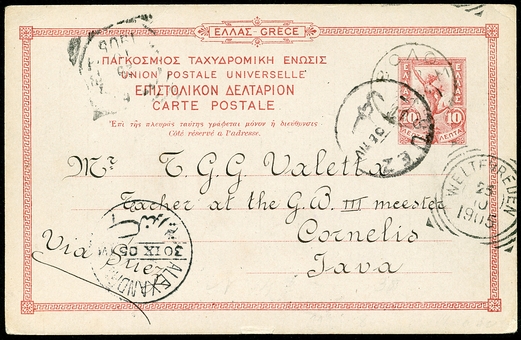 ΕΛΛΑΣ-GRÈCE
ΠΑΓΚΟΣΜΙΟΣ ΤΑΧΥΔΡΟΜΙΚΗ ΕΝΩΣΙΣ
UNION POSTALE UNIVERSELLE
ΕΠΙΣΤΟΛΙΚΟΝ ΔΕΛΤΑΡΙΟΝ
CARTE POSTALE
Ἐπὶ τῆς πλευρᾶς ταύτης γράφεται μόνον ἡ διεύθυνσις
Côté réservé a l'adresse.
10 10
ΛΕΠΤΑ
Mr T. G. G. Valette
Teacher at the G.B III meester
Cornelis
Java
Via
WELTEVREDEN
25
10
1905
ALEXANDRI
30 IX 05